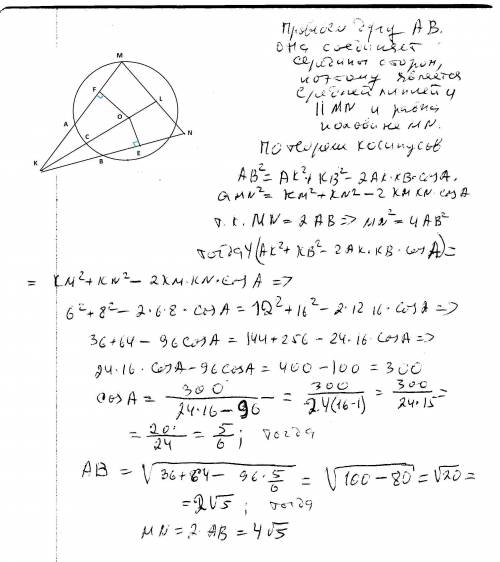 Проведём дугу AB.
она соединяет
середины сторон,
поэтому является
средней линией
|| MN и равна
половине MN.
По теореме косинусов
AB² = AK² + KB² - 2AK·KB·cosA.
а MN² = KM² + KN² - 2 KM KN·cosA
т.к. MN = 2 AB => MN² = 4AB²
тогда 4(AK² + KB² - 2AK·KB·cosA) =
= KM² + KN² - 2KM·KN·cosA =>
6² + 8² - 2·6·8·cosA = 12² + 16² - 2·12·16·cosA =>
36+64 - 96cosA = 144+256 - 24·16·cosA =>
24·16·cosA - 96cosA = 400 - 100 = 300
cosA = 300/(24·16-96) = 300/(24(16-1)) = 300/(24·15) =
= 20/24 = 5/6; тогда
AB = √(36+64 - 96·5/6) = √(100-80) = √20 =
= 2√5; тогда
MN = 2·AB = 4√5
M
F
L
A
O
C
N
B
E
K